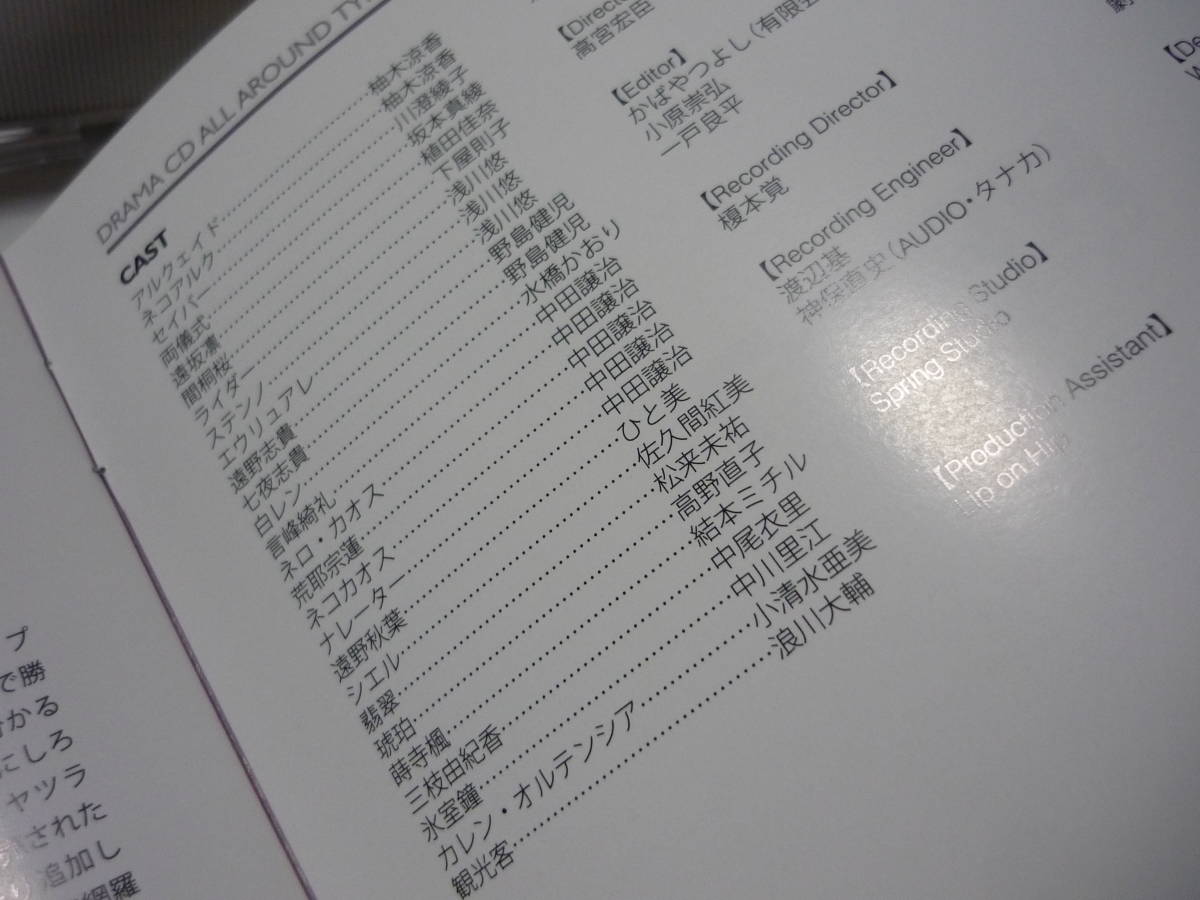 DRAMA CD ALL AROUND TY
CAST
アルクェイド……柚木涼香
ネコアルク……柚木涼香
セイバー……川澄綾子
両儀式……坂本真綾
遠坂凛……植田佳奈
間桐桜……下屋則子
ライダー……浅川悠
ステンノ……浅川悠
エウリュアレ……浅川悠
遠野志貴……野島健児
七夜志貴……野島健児
白レン……水橋かおり
言峰綺礼……中田譲治
ネロ・カオス……中田譲治
荒耶宗蓮……中田譲治
ネコカオス……中田譲治
ナレーター……中田譲治
遠野秋葉……ひと美
シエル……佐久間紅美
翡翠……松来未祐
琥珀……高野直子
蒔寺楓……結本ミチル
三枝由紀香……中尾衣里
氷室鐘……中川里江
カレン・オルテンシア……小清水亜美
観光客……浪川大輔
【Director
高宮宏臣
【Editor】
かばやつよし(有限
小原崇弘
一戸良平
【Recording Director】
榎本覚
【Recording Engineer】
渡辺基
神保直史(AUDIO・タナカ)
【Recording Studio】
Spring Studio
【Production Assistant】
Lip on Hip
【De
プ
で勝
かる
にしろ
ヤツラ
された
追加し
網羅